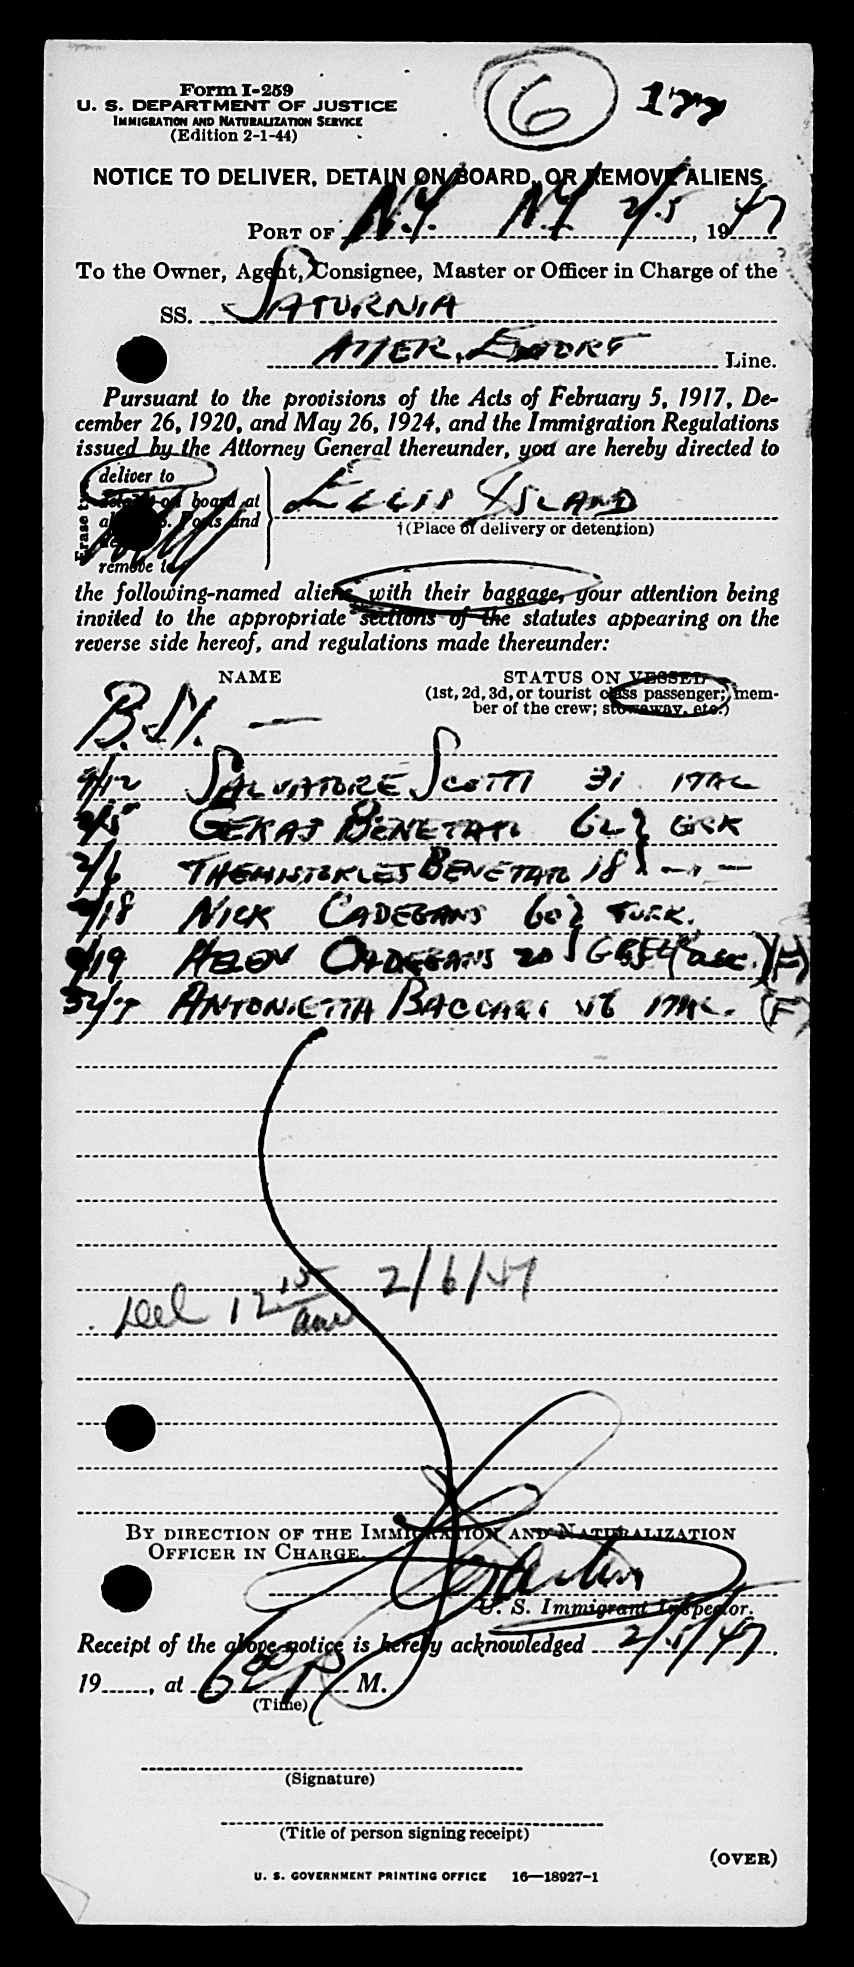 Form I-259
U. S. DEPARTMENT OF JUSTICE
IMMIGRATION AND NATURALIZATION SERVICE
(Edition 2-1-44)
6 177
NOTICE TO DELIVER, DETAIN ON BOARD, OR REMOVE ALIENS
PORT OF N.Y. N.Y 2/5, 1947
To the Owner, Agent, Consignee, Master or Officer in Charge of the
SS. SATURNIA
AMER. EXPORT Line.
Pursuant to the provisions of the Acts of February 5, 1917, De-
cember 26, 1920, and May 26, 1924, and the Immigration Regulations
issued by the Attorney General thereunder, you are hereby directed to
deliver to
on board at
Ports and
remove to
ELLIS ISLAND
†(Place of delivery or detention)
the following-named aliens, with their baggage, your attention being
invited to the appropriate sections of the statutes appearing on the
reverse side hereof, and regulations made thereunder:
NAME STATUS ON VESSEL
(1st, 2d, 3d, or tourist class passenger; mem-
ber of the crew; stowaway, etc.)
B.SI. —
9/12 SALVATORE SCOTTI 31 ITAL
GERAS BENETAN 62 GRK
2/6 THEMISTOKLES BENETAN 18 - " -
/18 NICK CADEGANS 60 TURK.
/19 HELEN CADEGANS 20 (F)
ANTONIETTA BACCARI ITAL. (F)
Del 12 15 am 2/6/47
BY DIRECTION OF THE IMMIGRATION AND NATURALIZATION
OFFICER IN CHARGE.
U. S. Immigrant Inspector.
Receipt of the above notice is hereby acknowledged 2/5/47,
19......, at 6 00 P M.
(Time)
(Signature)
(Title of person signing receipt)
(OVER)
U. S. GOVERNMENT PRINTING OFFICE 16—18927-1